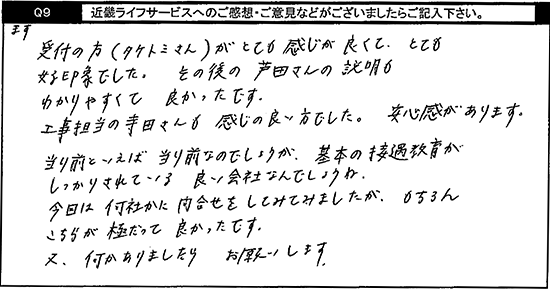 Q9 近畿ライフサービスへのご感想・ご意見などがございましたらご記入下さい。
ます
受付の方(タケトミさん)がとても感じが良くて、とても
好印象でした。その後の芦田さんの説明も
わかりやすくて良かったです。
工事担当の寺田さんも感じの良い方でした。安心感があります。
当り前といえば当り前なのでしょうが、基本の接遇教育が
しっかりされている良い会社なんでしょうね。
今回は何社かに問合せをしてみてみましたが、もちろん
こちらが極だって良かったです。
又、何かありましたらお願いします